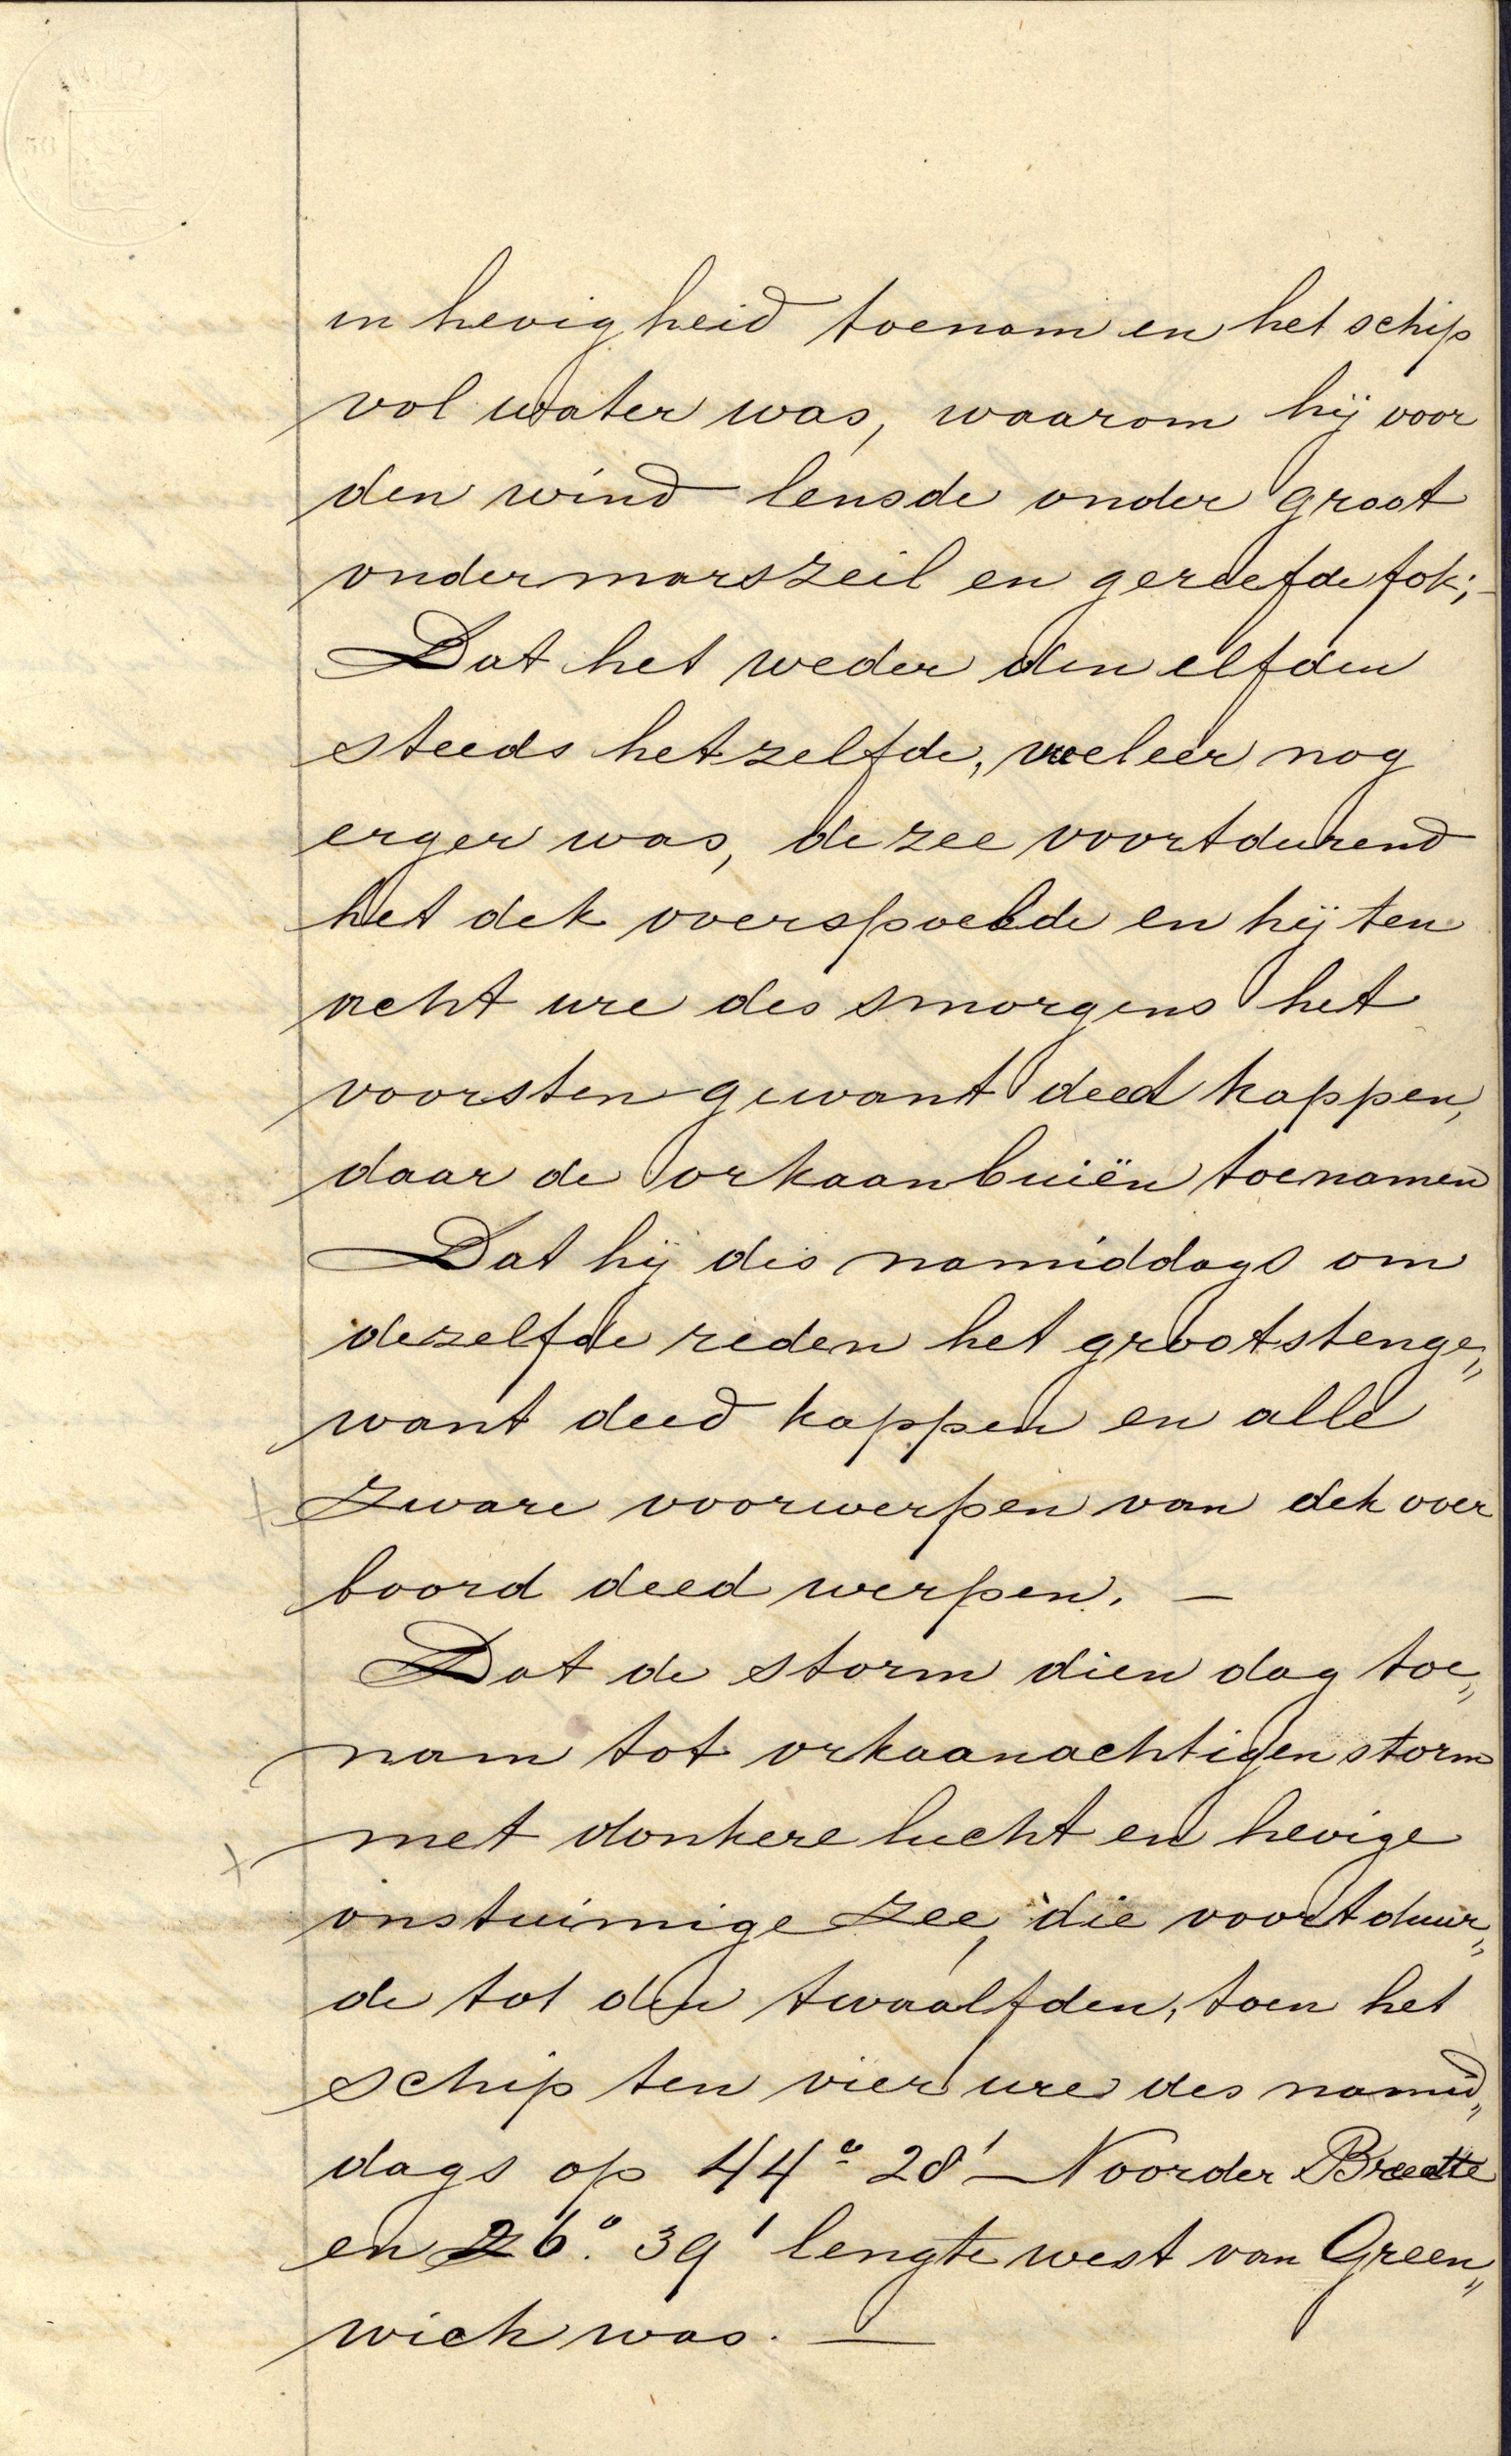 in hevigheid toenam en het schip
vol water was, waarom hij voor
den wind lensde onder groot
ondermarszeil en gereefde fok; -
Dat het weder den elfden
steeds hetzelfde, veeleer nog
erger was, de zee voortdurend
het dek overspoelde en hij ten
acht ure des smorgens het
voorstengewant deed kappen,
daar de orkaanbuiën toenamen
Dat hij des namiddags om
dezelfde reden het grootstenge„
want deed kappen en alle
zware voorwerpen van dek over
boord deed werpen. -
Dat de storm dien dag toe„
nam tot orkaanachtigen storm
met donkere lucht en hevige
onstuimige zee, die voortduur„
de tot den twaalfden, toen het
schip ten vier ure des namid„
dags op 44° 28' Noorder Breedte
en 26° 39' lengte west van Green„
wich was. -